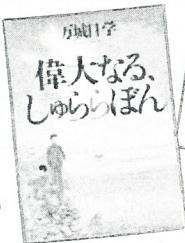 万城目学
偉大なる、
しゅららぼん